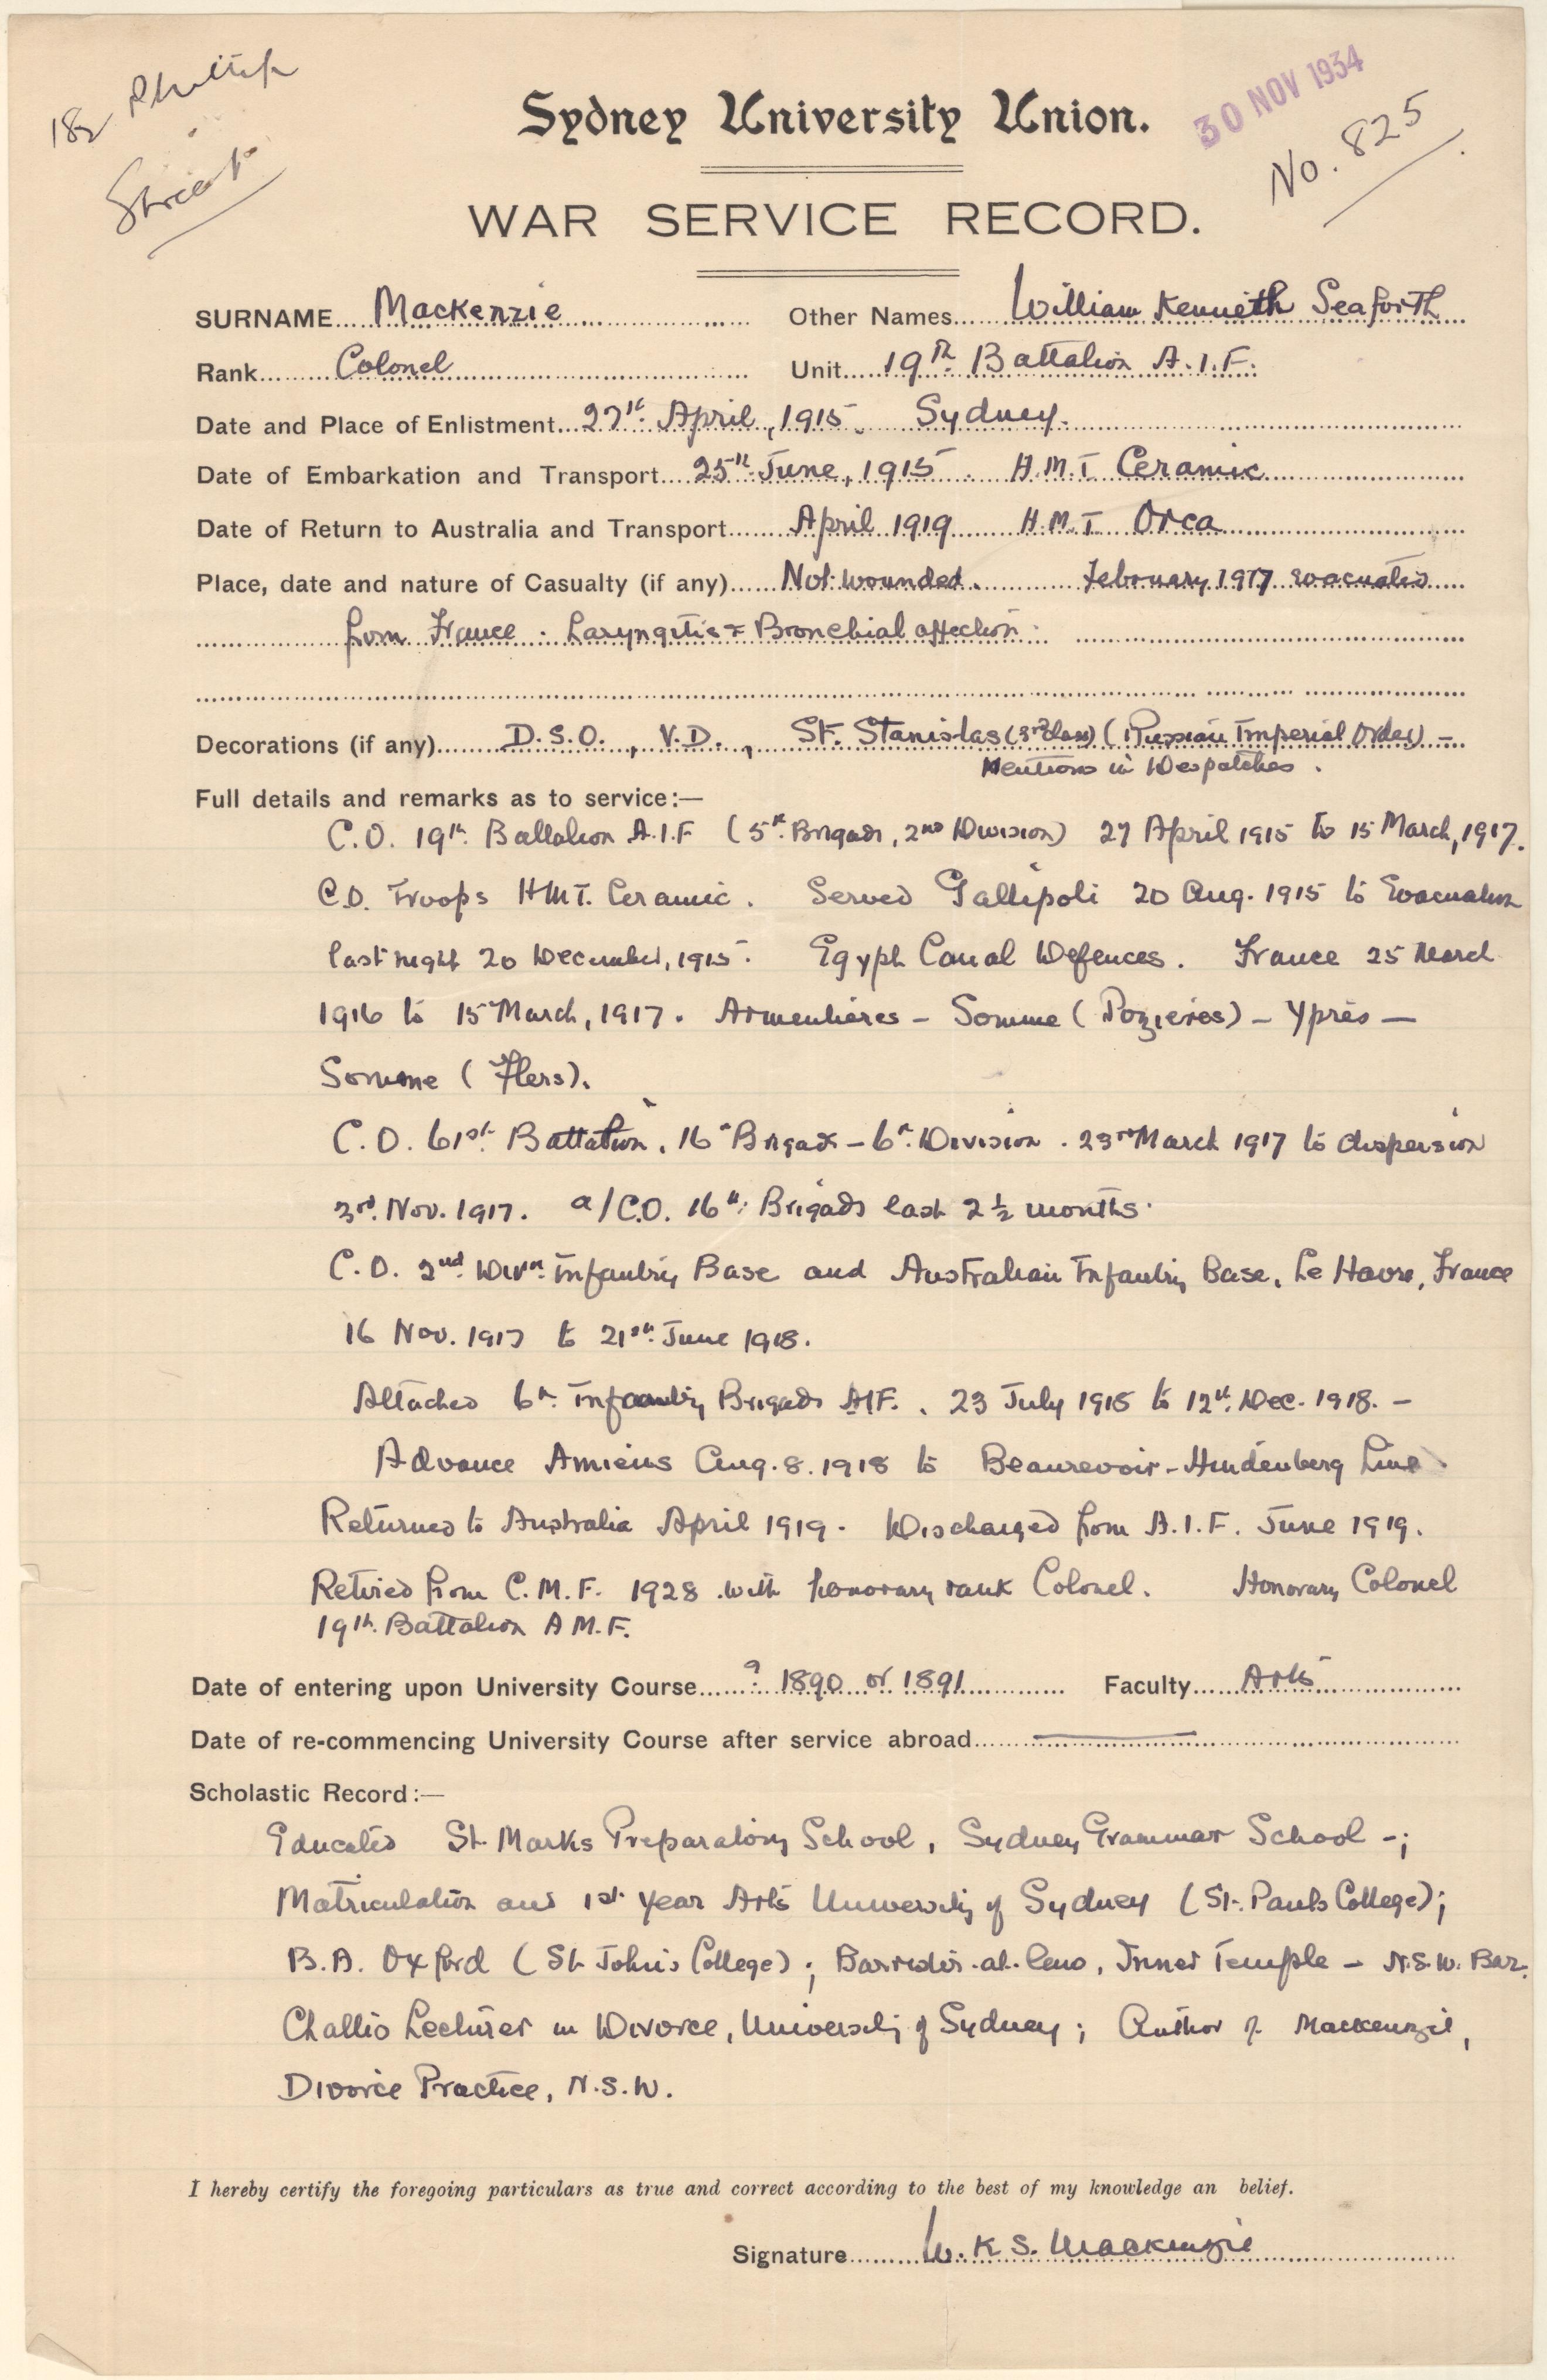 182 Phillip
Street
30 NOV 1934
No. 825
Sydney University Union.
WAR SERVICE RECORD.
SURNAME Mackenzie Other Names William Kenneth Seaforth
Rank Colonel Unit 19th Battalion A.I.F.
Date and Place of Enlistment 27th April, 1915. Sydney.
Date of Embarkation and Transport 25th June, 1915. H.M.T Ceramic
Date of Return to Australia and Transport April 1919 H.M.T Orca
Place, date and nature of Casualty (if any) Not wounded. February 1917 evacuated
from France. Laryngitis & Bronchial affection.
Decorations (if any) D.S.O., V.D., St. Stanislas (3rd Class) (Russian Imperial Order) –
Mentions in Despatches.
Full details and remarks as to service:—
C.O. 19th Battalion A.I.F (5th Brigade, 2nd Division) 27 April 1915 to 15 March, 1917.
C.O. Troops HMT. Ceramic. Served Gallipoli 20 Aug. 1915 to Evacuation
last night 20 December, 1915. Egypt Canal Defences. France 25 March
1916 to 15 March, 1917. Armentières – Somme (Pozières) – Ypres –
Somme (Flers).
C.O. 61st Battalion, 16th Brigade – 6th Division. 23rd March 1917 to dispersion
3rd. Nov. 1917. a/C.O. 16th Brigade last 2½ months.
C.O. 2nd Divn. Infantry Base and Australian Infantry Base, Le Havre, France
16 Nov. 1917 to 21st June 1918.
Attached 6th Infantry Brigade AIF. , 23 July 1918 to 12th Dec. 1918. –
Advance Amiens Aug. 8. 1918 to Beaurevoir – Hindenberg Line.
Returned to Australia April 1919. Discharged from A.I.F. June 1919.
Retired from C.M.F. 1928 with honorary rank Colonel. Honorary Colonel
19th. Battalion A M.F.
Date of entering upon University Course ? 1890 or 1891 Faculty Arts
Date of re-commencing University Course after service abroad ———
Scholastic Record:—
Educated St. Marks Preparatory School, Sydney Grammar School –;
Matriculation and 1st year Arts University of Sydney (St. Pauls College);
B.A. Oxford (St John's College); Barrister-at-law, Inner Temple – N.S.W. Bar.
Challis Lecturer in Divorce, University of Sydney; Author of Mackenzie,
Divorce Practice, N.S.W.
I hereby certify the foregoing particulars as true and correct according to the best of my knowledge an belief.
Signature W. K S. Mackenzie